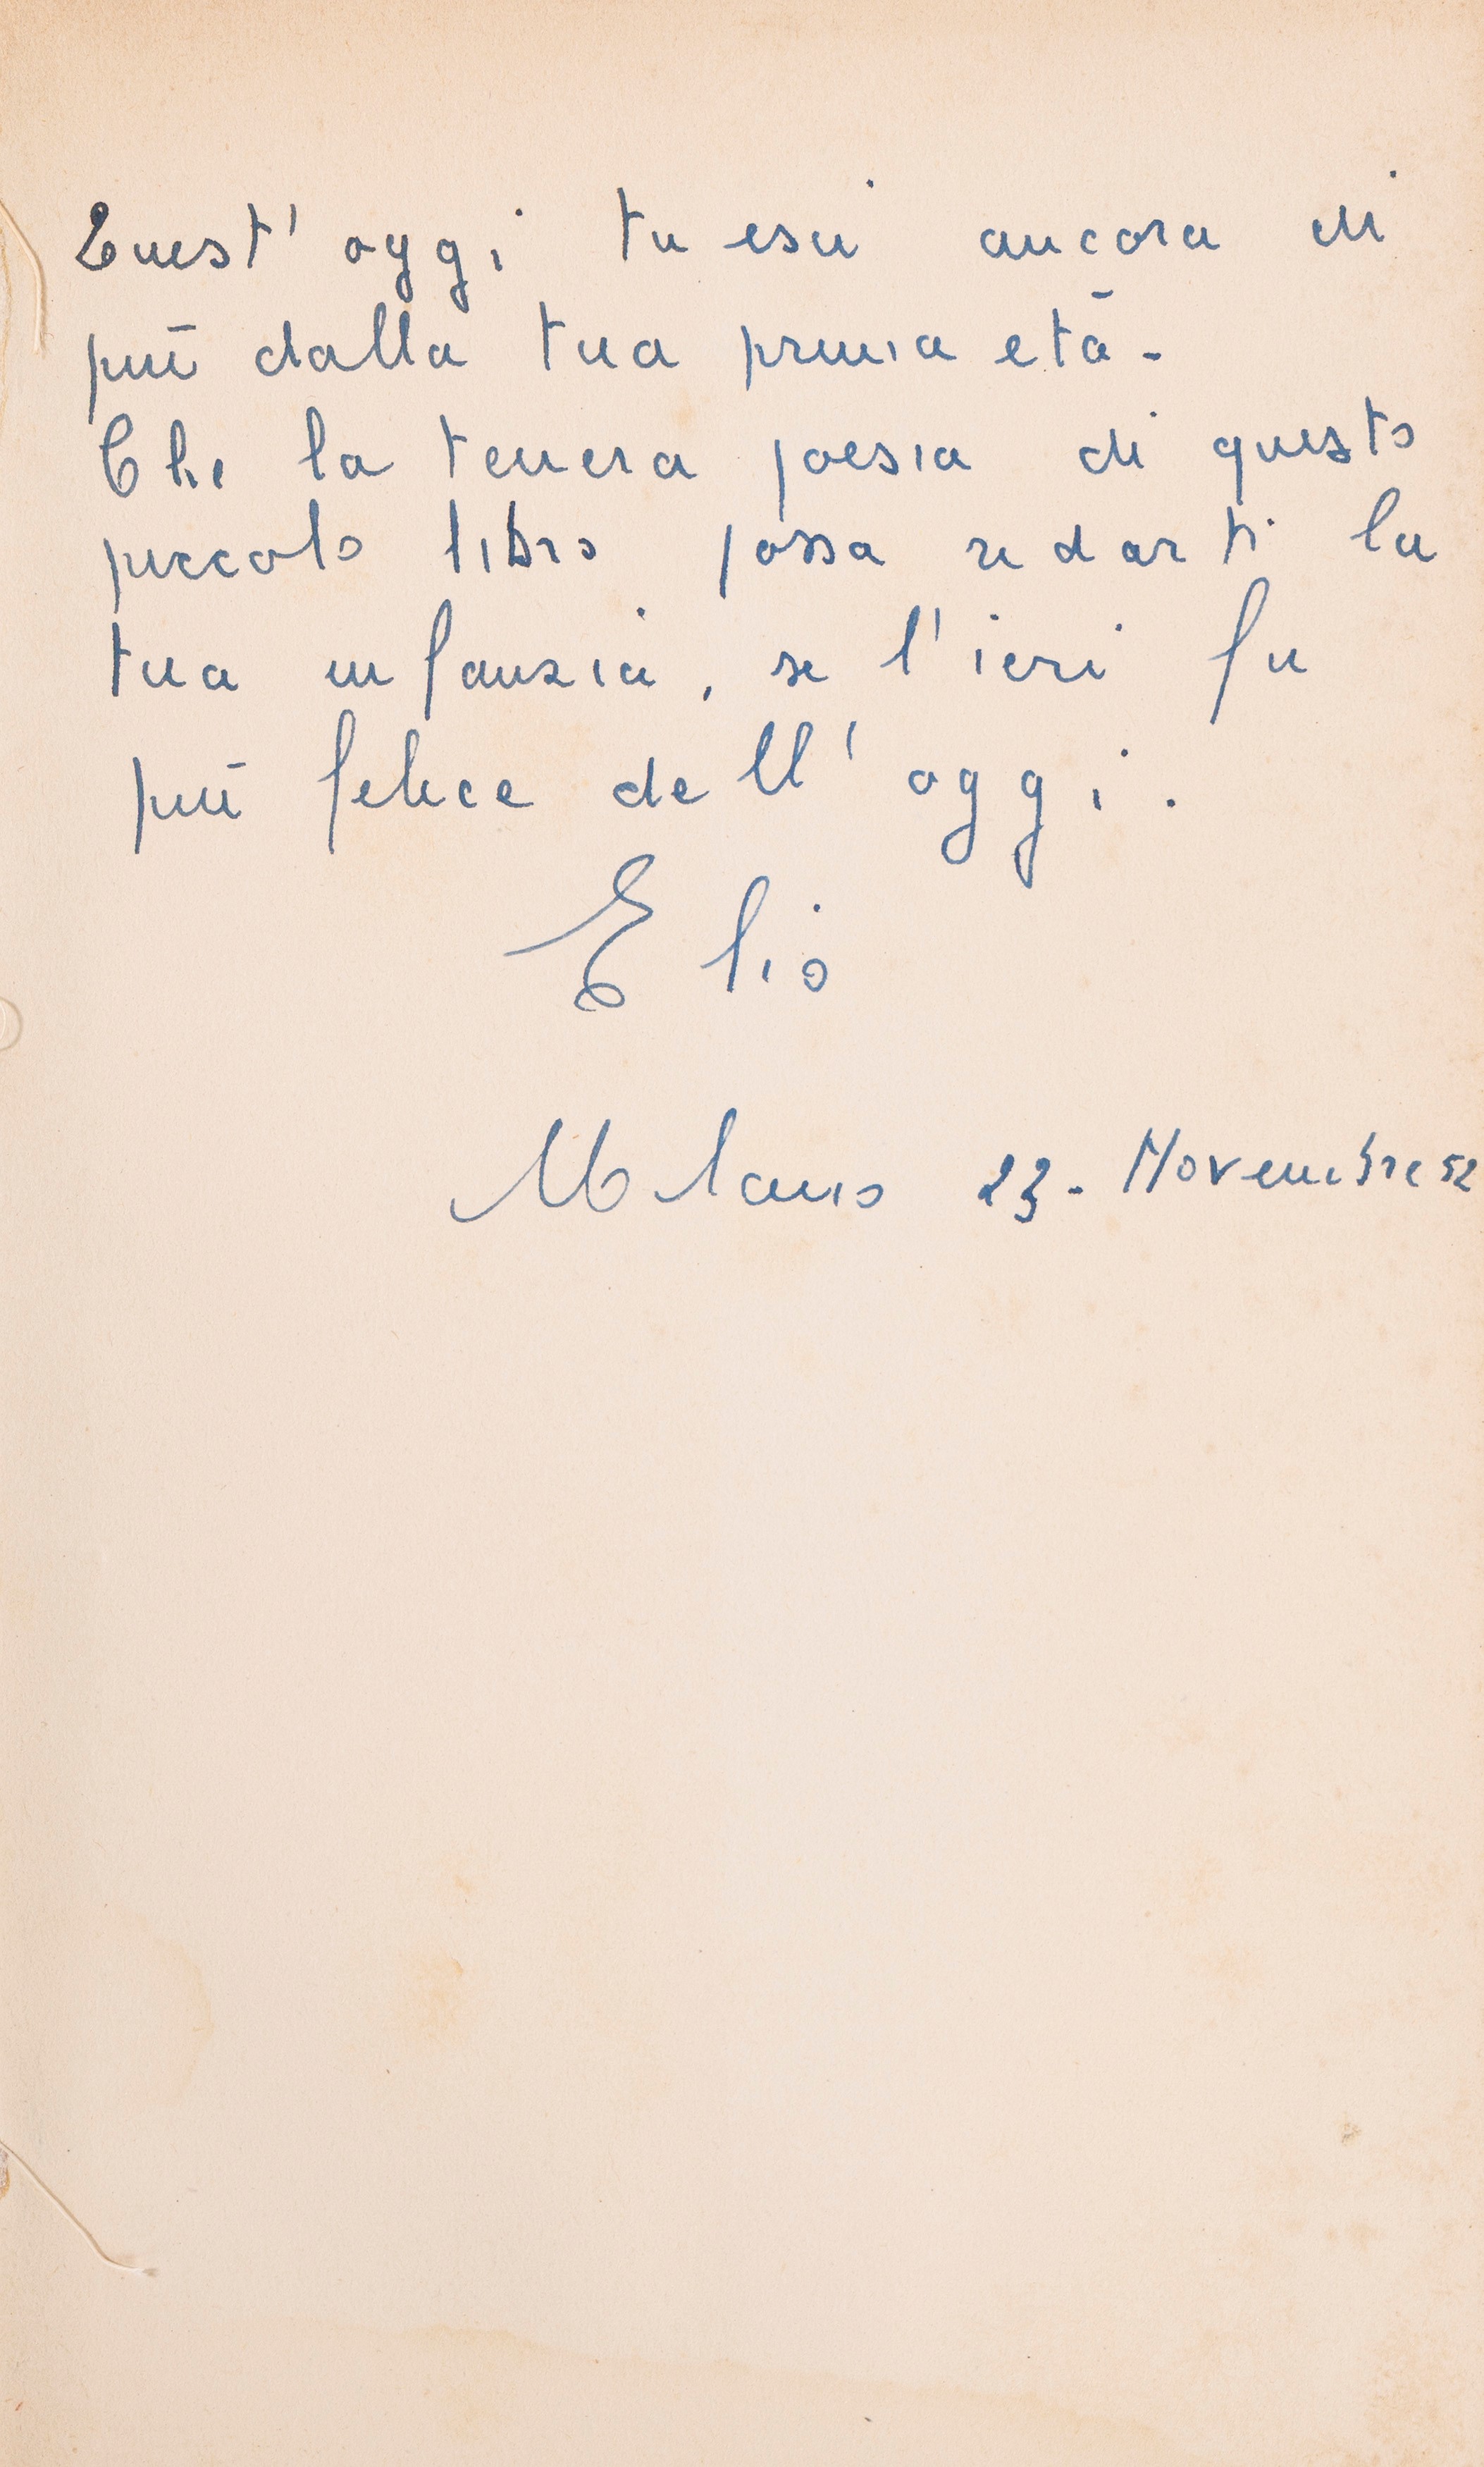 Quest'oggi tu esci ancora di
più dalla tua prima età -
Che la tenera poesia di questo
piccolo libro possa ridarti la
tua infanzia, se l'ieri fu
più felice dell'oggi.
Elio
Milano 23 - Novembre 52